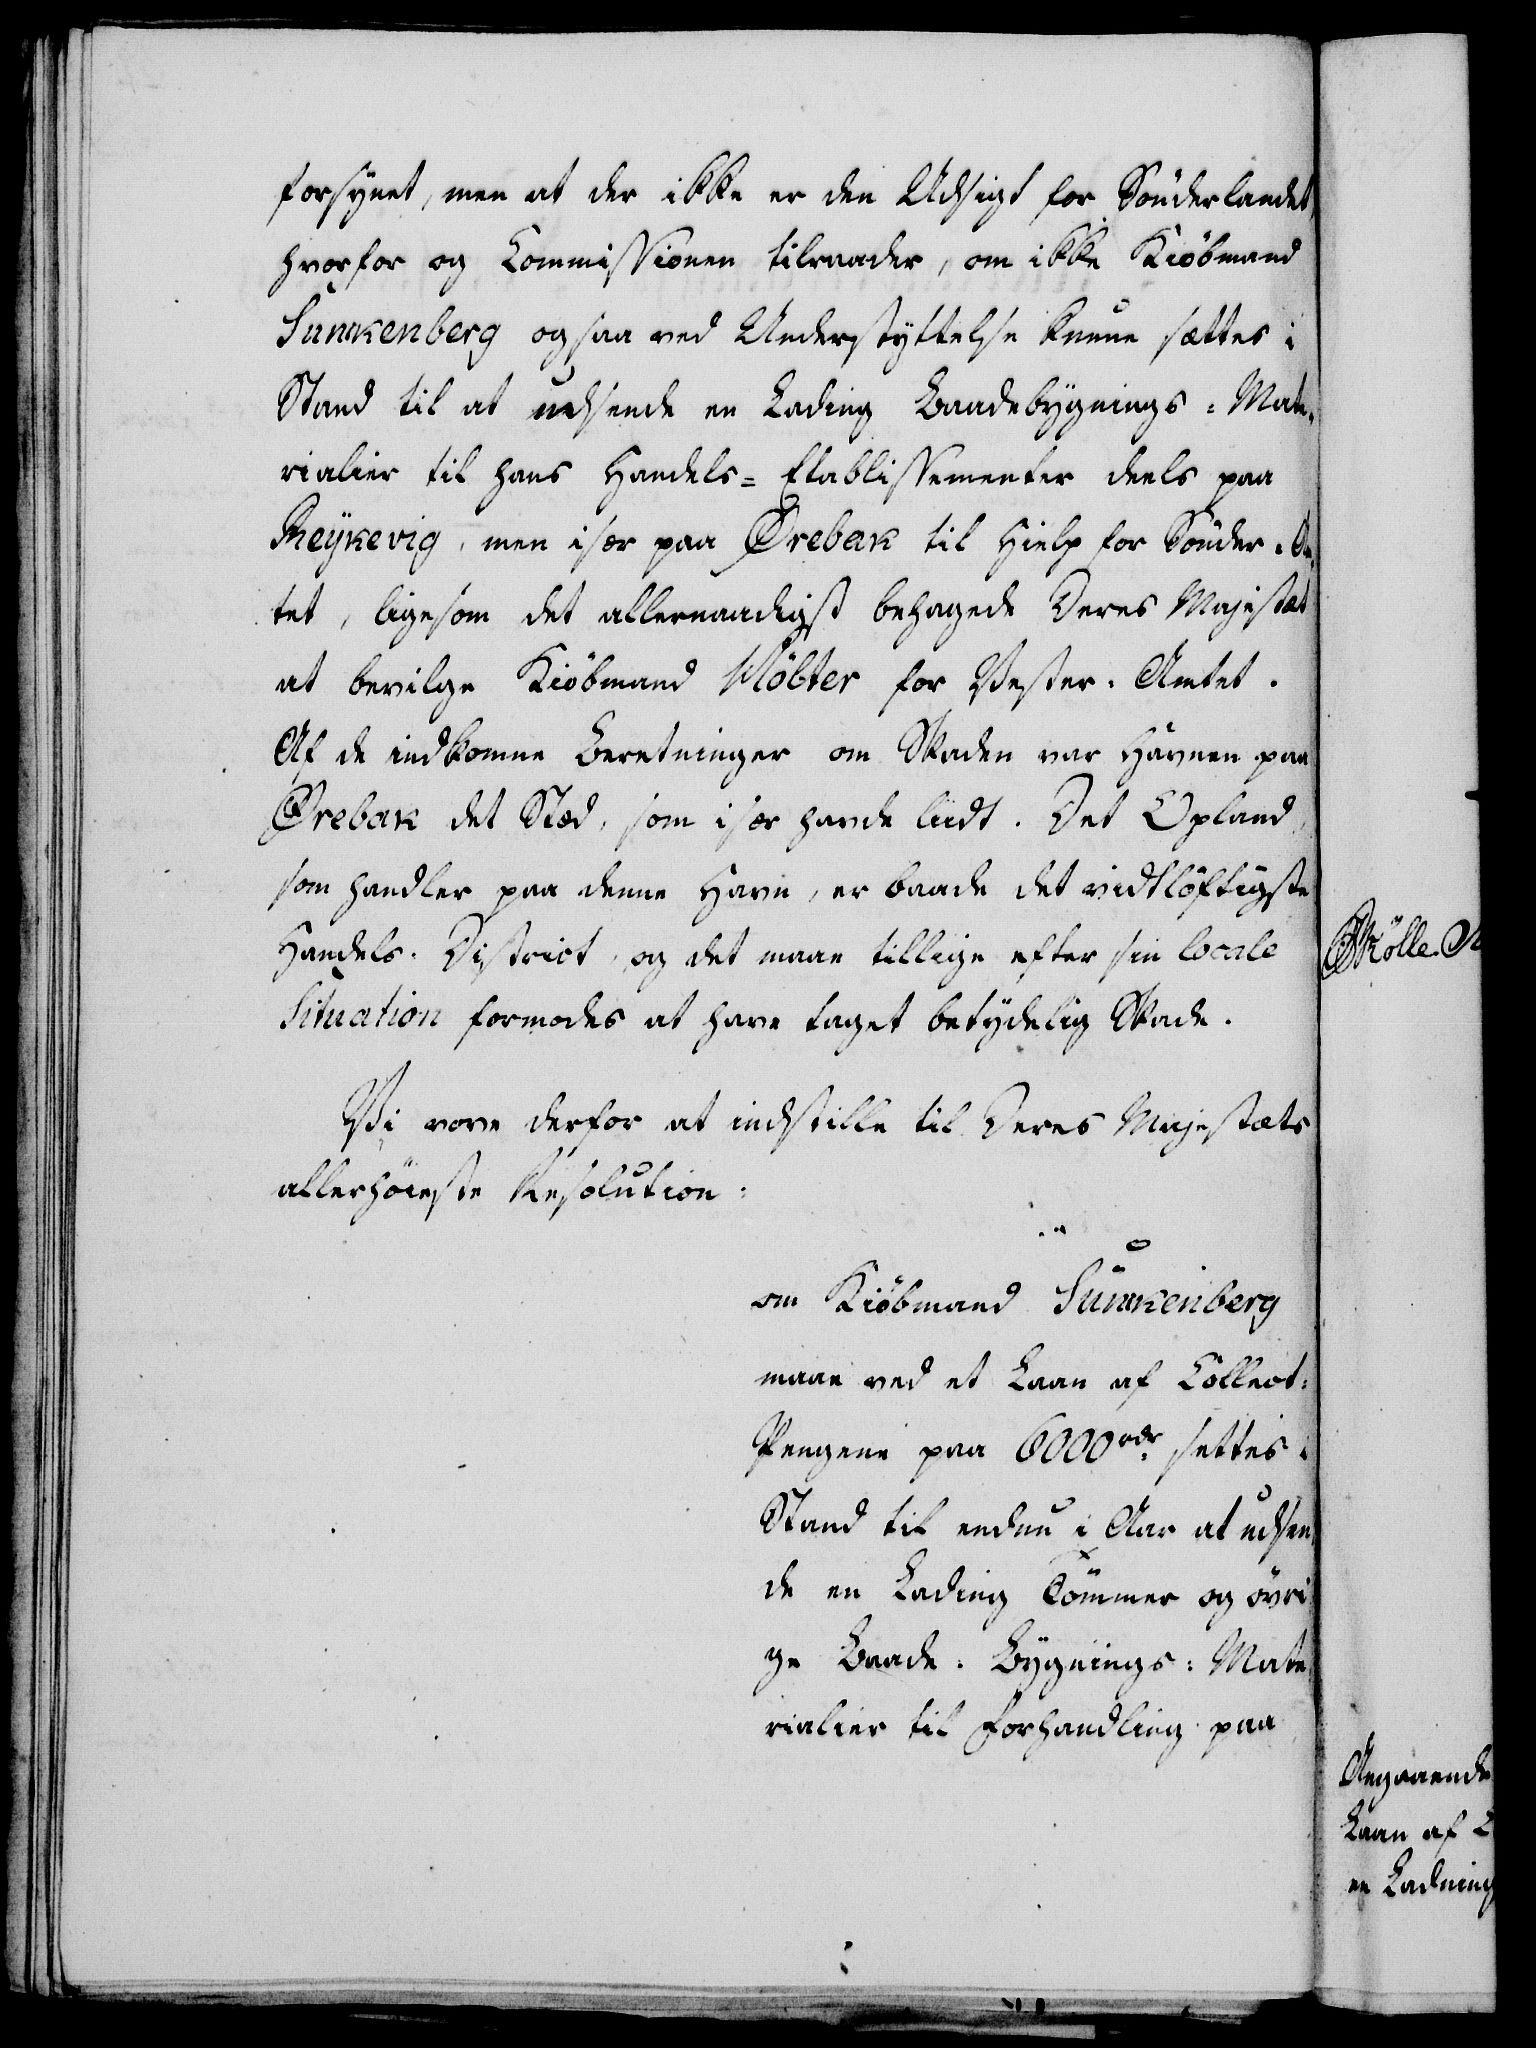 forsynet, men at der ikke er den Udsigt for Sönderlandet
hvorfor og Commissionen tilraader, om ikke Kiöbmand
Sunkenberg ogsaa ved Understyttelse kunne sættes i
Stand til at udsende en Lading Baadebÿgnings-Mate-
rialier til hans Handels-Etablissementer deels paa
Reÿkevig, men især paa Örebak til Hielp for Sönder-Am-
tet, ligesom det allernaadigst behagede Deres Majestæt
at bevilge Kiöbmand Klöbter for Vester-Amtet.
Af de indkomne Beretninger om Skaden var Havnen paa
Örebak det Stæd, som især havde liidt. Det Opland,
som handler paa denne Havn, er baade det vidtlöftigste
Handels-District, og det maae tillige efter sin locale
Situation formodes at have taget betÿdelig Skade.
Vi vove derfor at indstille til Deres Majestæts
allerhöieste Resolution:
om Kiöbmand Sunkenberg
maae ved et Laan af Collect-
Pengene paa 6000 rdr. settes i
Stand til endnu i Aar at udsen
de en Lading Tömmer og övri
ge Baade-Bÿgnings-Mate
rialier til Forhandling paa
Skölle
Angaaende
Laan af
en Ladning